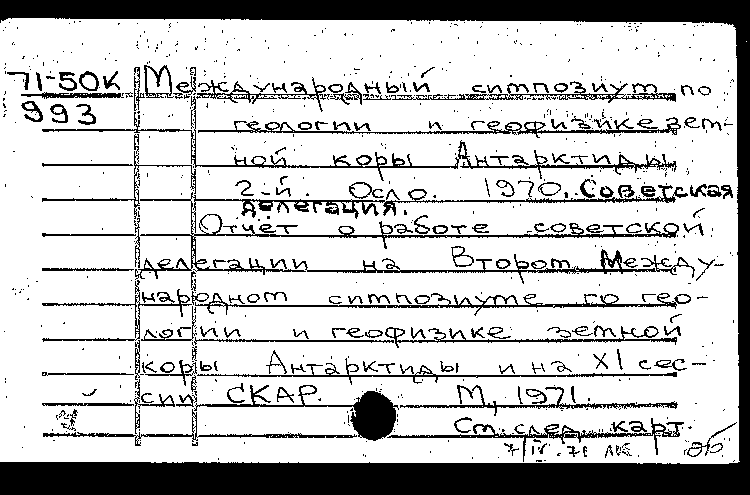 71-50К Международный симпозиум по
993 геологии и геофизике зем-
ной коры Антарктиды
2-й. Осло. 1970. Советская
делегация.
Отчёт о работе советской
делегации на Втором Между-
народном симпозиуме по гео-
логии и геофизике земной
коры Антарктиды и на XI сес-
сии СКАР. М, 1971.
См. след. карт.
7/IV.71